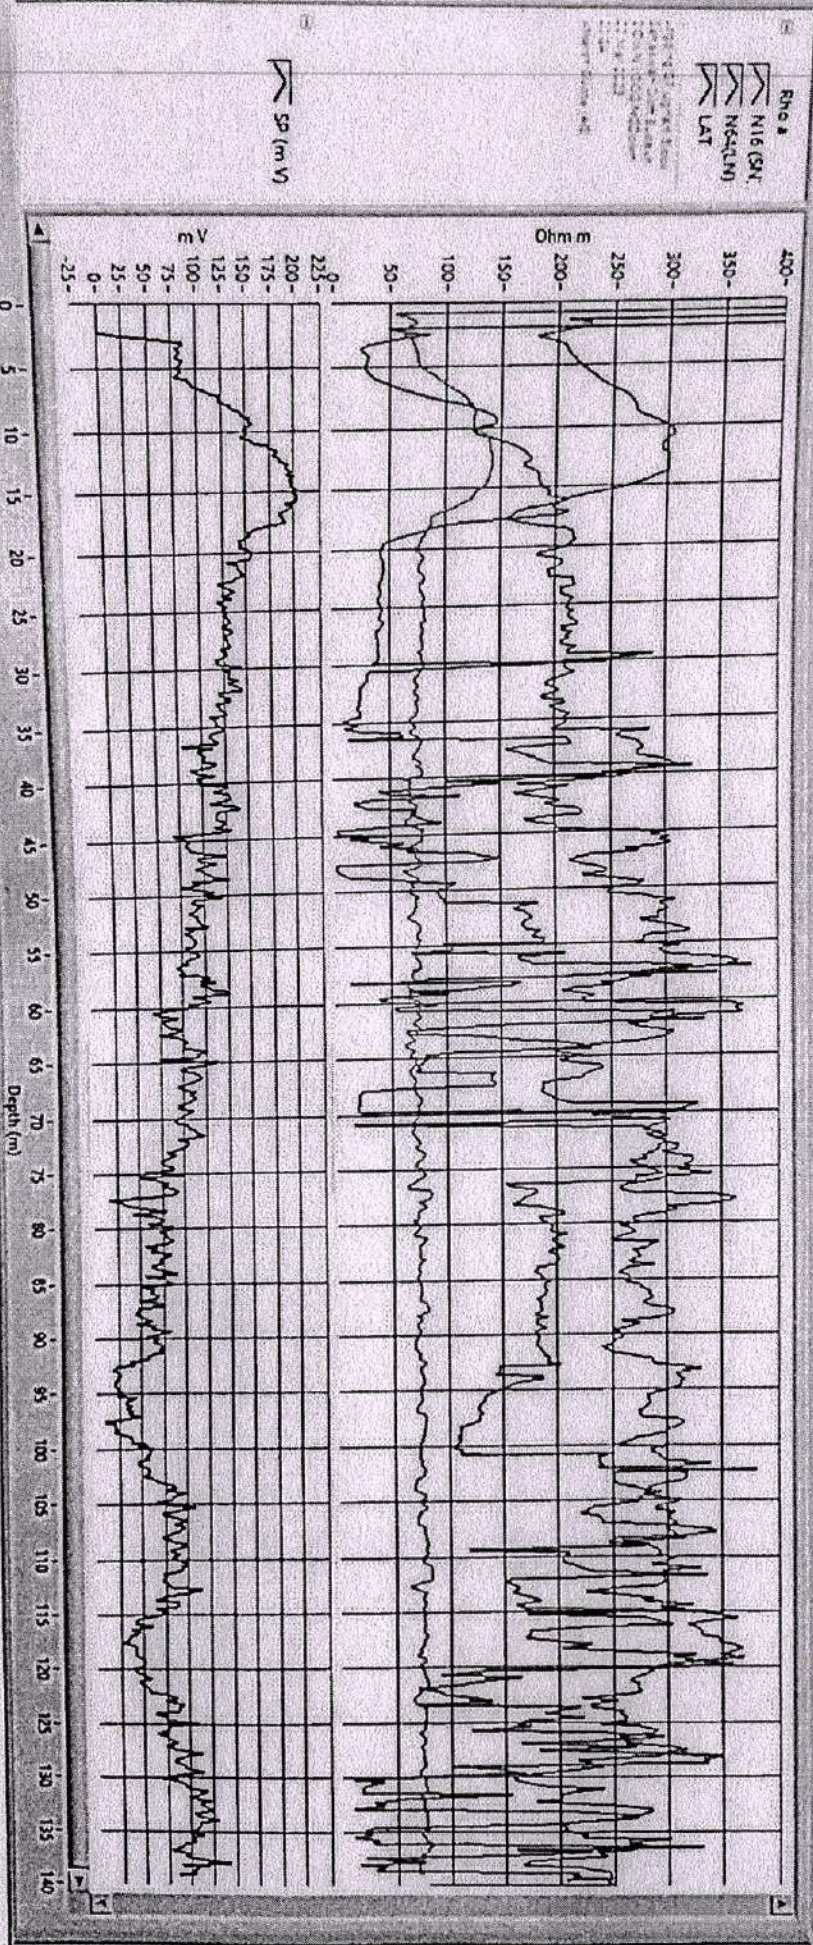 Rho a
N16 (SN)
N64(LN)
LAT
SP (mV)
Ohm m
400-
350-
300-
250-
200-
150-
100-
50-
0
mV
225-
200-
175-
150-
125-
100-
75-
50-
25-
0-
-25-
0
5
10
15
20
25
30
35
40
45
50
55
60
65
70
75
80
85
90
95
100
105
110
115
120
125
130
135
140
Depth (m)